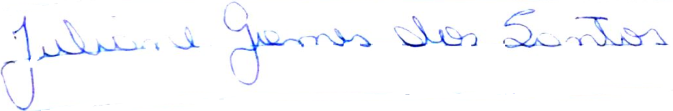 Juliene Gomes dos Santos